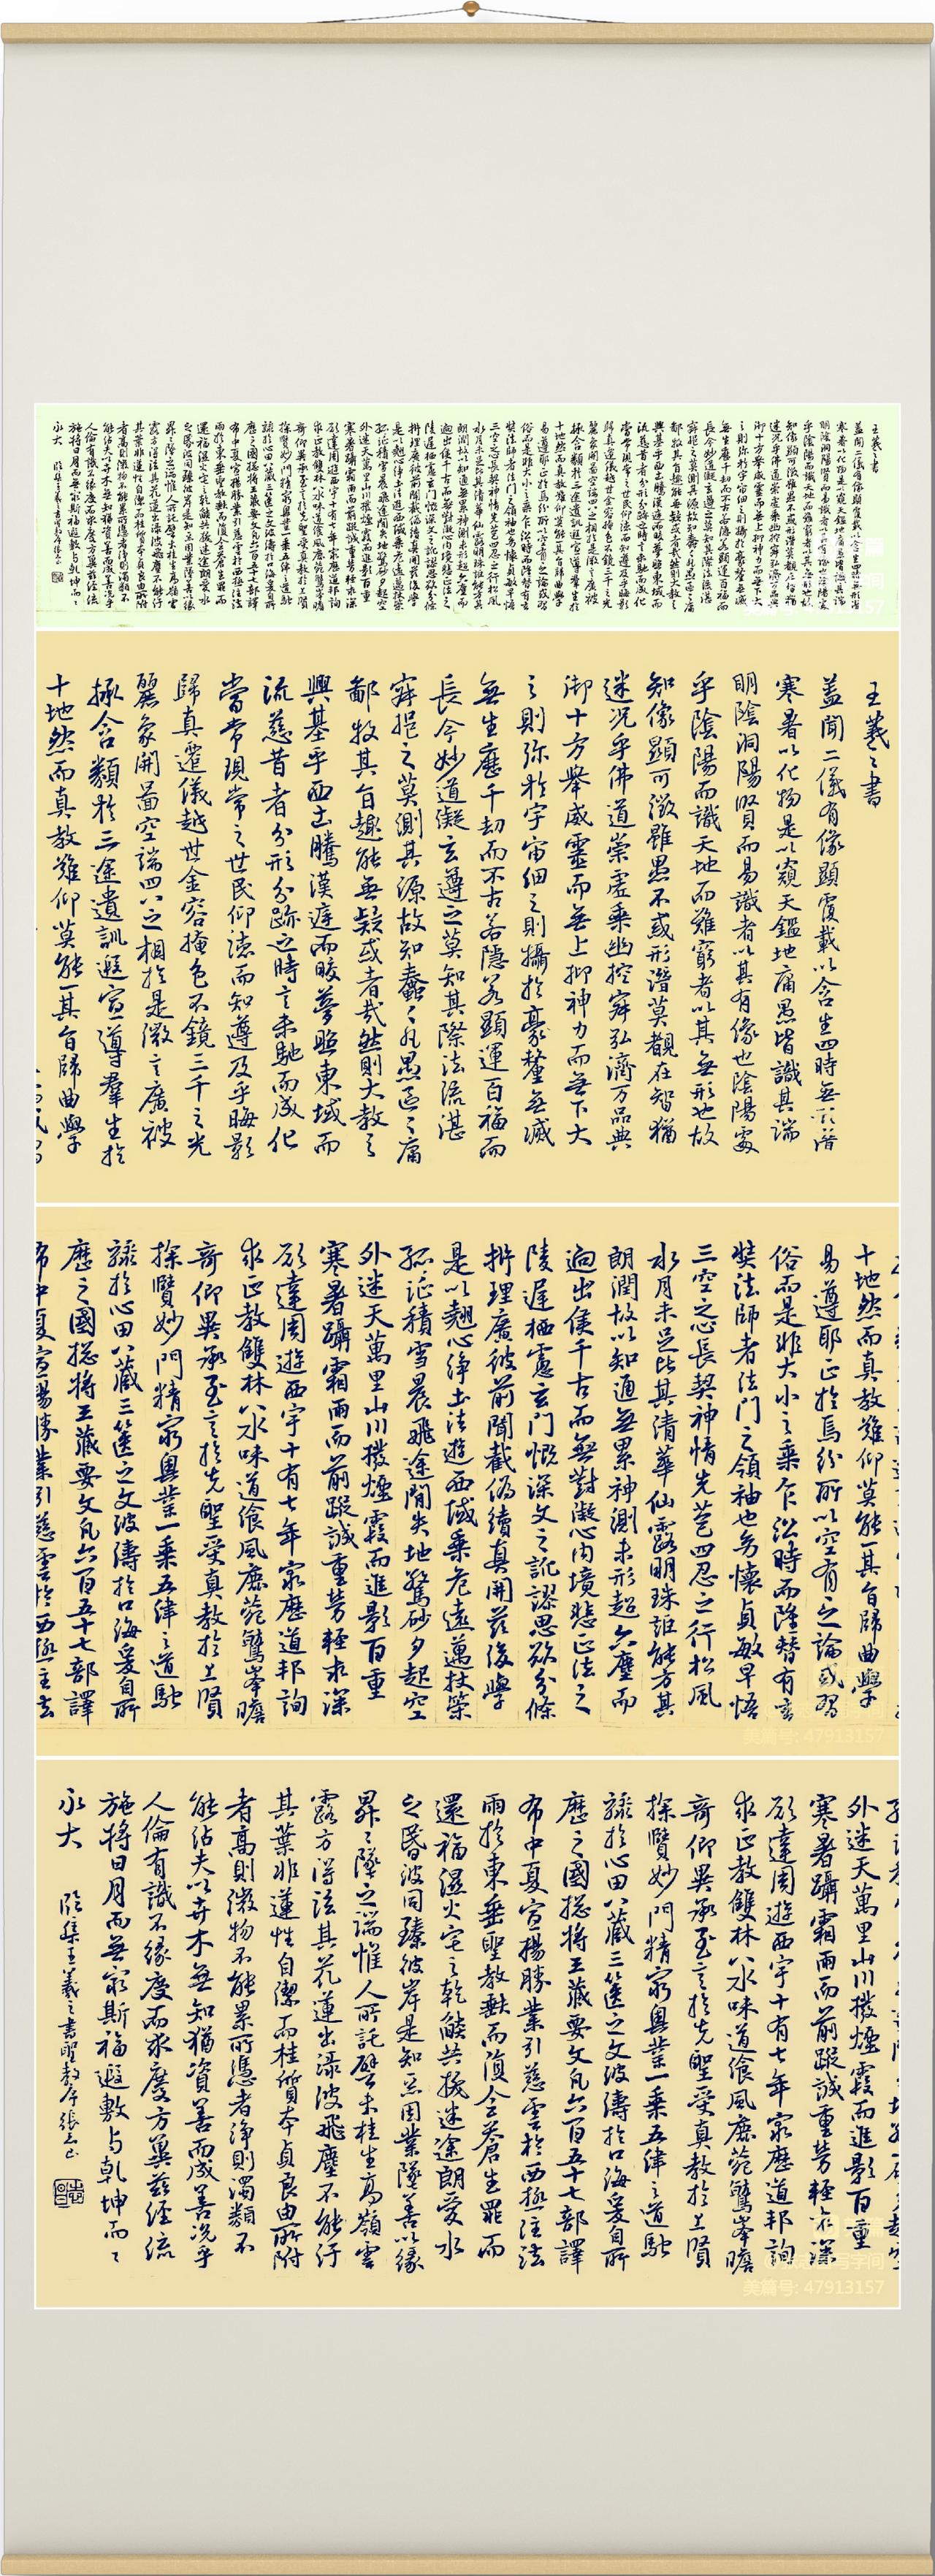 王羲之書
蓋聞二儀有像顯覆載以含生四時無形潛
寒暑以化物是以窺天鑑地庸愚皆識其端
明陰洞陽賢而易識者以其有像也陰陽處
乎陰陽而識天地而難窮者以其無形也故
知像顯可徵雖愚不惑形潛莫覩在智猶
迷況乎佛道崇虛乘幽控寂弘濟万品典
御十方舉威靈而無上抑神力而無下大
之則弥於宇宙細之則攝於豪釐無滅
無生歷千劫而不古若隱若顯運百福而
長今妙道凝玄遵之莫知其際法流湛
寂挹之莫測其源故知蠢々凡愚區々庸
鄙投其旨趣能無疑或者哉然則大教之
興基乎西土騰漢庭而皎夢照東域而
流慈昔者分形分跡之時言未馳而成化
當常現常之世民仰德而知遵及乎晦影
歸真遷儀越世金容掩色不鏡三千之光
麗象開圖空端四八之相於是微言廣被
拯含類於三途遺訓遐宣導羣生於
十地然而真教難仰莫能一其旨歸曲學
十地然而真教難仰莫能一其旨歸曲學
易遵耶正於焉紛糾所以空有之論或習
俗而是非大小之乘乍沿時而隆替有玄
奘法師者法門之領袖也幼懷貞敏早悟
三空之心長契神情先苞四忍之行松風
水月未足比其清華仙露明珠詎能方其
朗潤故以知通無累神測未形超六塵而
迥出隻千古而無對凝心內境悲正法之
陵遲栖慮玄門慨深文之訛謬思欲分條
析理廣彼前聞截偽續真開茲後學
是以翹心淨土法遊西域乘危遠邁杖策
孤征積雪晨飛途間失地驚砂夕起空
外迷天萬里山川撥煙霞而進影百重
寒暑躡霜雨而前蹤誠重勞輕求深
願達周遊西宇十有七年窮歷道邦詢
求正教雙林八水味道飡風鹿菀鷲峯瞻
奇仰異承至言於先聖受真教於上賢
探賾妙門精窮奧業一乘五律之道馳
驟於心田八藏三篋之文波濤於口海爰自所
歷之國總將三藏要文凡六百五十七部譯
布中夏宣揚勝業引慈雲於西極注法
外迷天萬里山川撥煙霞而進影百重
寒暑躡霜雨而前蹤誠重勞輕求深
願達周遊西宇十有七年窮歷道邦詢
求正教雙林八水味道飡風鹿菀鷲峯瞻
奇仰異承至言於先聖受真教於上賢
探賾妙門精窮奧業一乘五律之道馳
驟於心田八藏三篋之文波濤於口海爰自所
歷之國總將三藏要文凡六百五十七部譯
布中夏宣揚勝業引慈雲於西極注法
雨於東垂聖教缺而復全蒼生罪而
還福濕火宅之乾燄共拔迷途朗愛水
之昏波同臻彼岸是知惡因業墜善以緣
昇昇墜之端惟人所託譬夫桂生高嶺雲
露方得泫其花蓮出淥波飛塵不能污
其葉非蓮性自潔而桂質本貞良由所附
者高則微物不能累所憑者淨則濁類不
能沾夫以卉木無知猶資善而成善況乎
人倫有識不緣慶而求慶方冀茲經流
施將日月而無窮斯福遐敷与乾坤而々
永大
臨集王羲之書聖教序張志
美篇号: 47913157